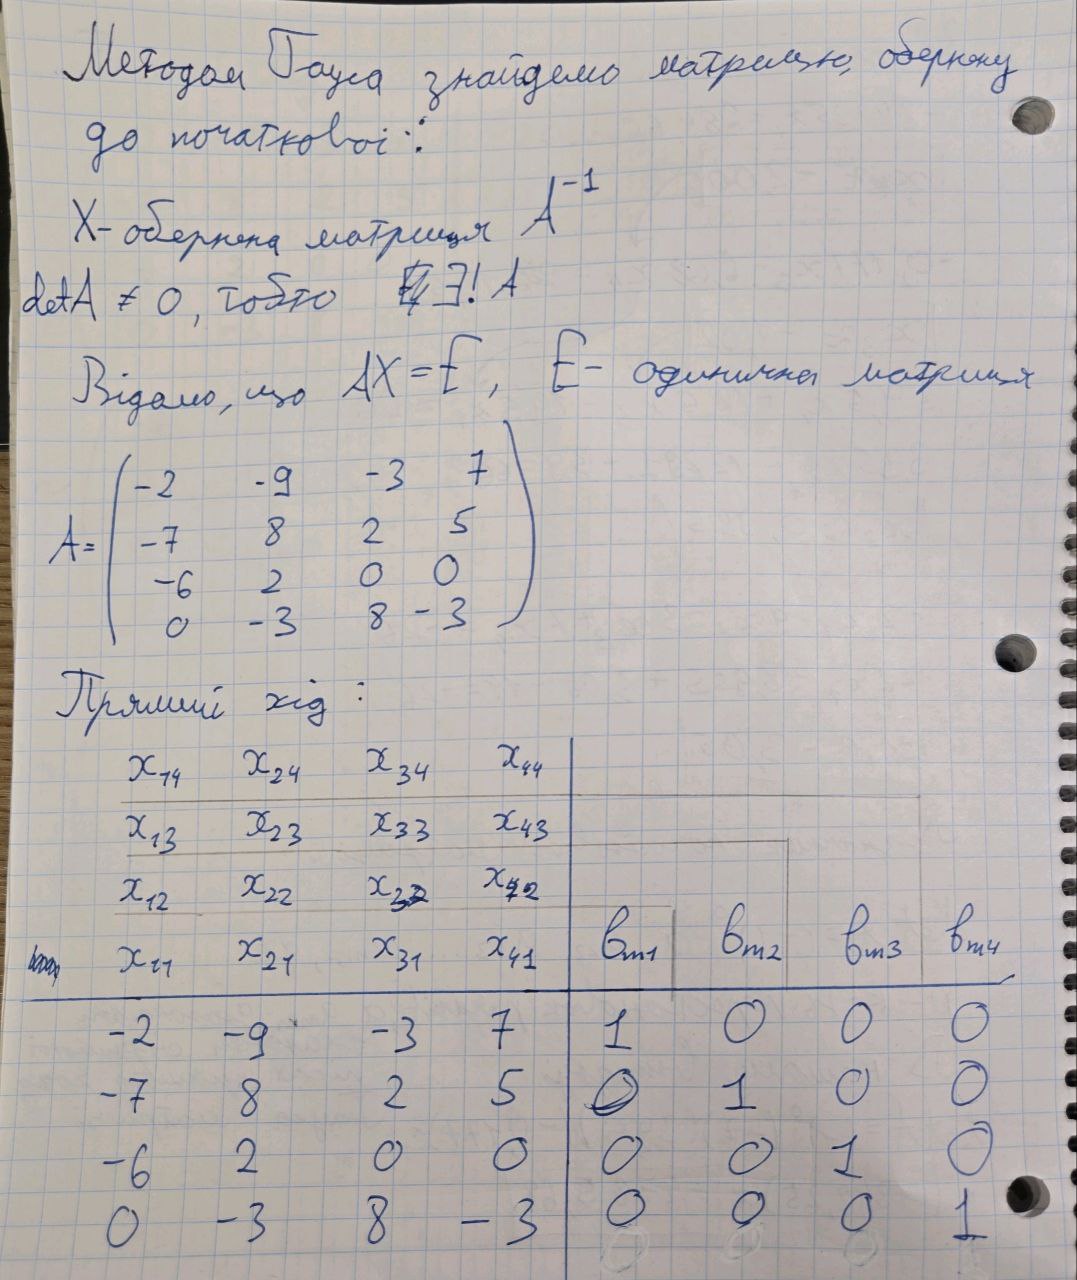 Методом Гауса знайдемо матрицю, обернену
до початкової:
X- обернена матриця A⁻¹
detA ≠ 0, тобто ∃! A
Відомо, що AX = E, E - одинична матриця
A= ( -2 -9 -3 7
-7 8 2 5
-6 2 0 0
0 -3 8 -3 )
Прямий хід:
x₁₄ x₂₄ x₃₄ x₄₄
x₁₃ x₂₃ x₃₃ x₄₃
x₁₂ x₂₂ x₃₂ x₄₂
x₁₁ x₂₁ x₃₁ x₄₁ bₘ₁ bₘ₂ bₘ₃ bₘ₄
-2 -9 -3 7 1 0 0 0
-7 8 2 5 0 1 0 0
-6 2 0 0 0 0 1 0
0 -3 8 -3 0 0 0 1